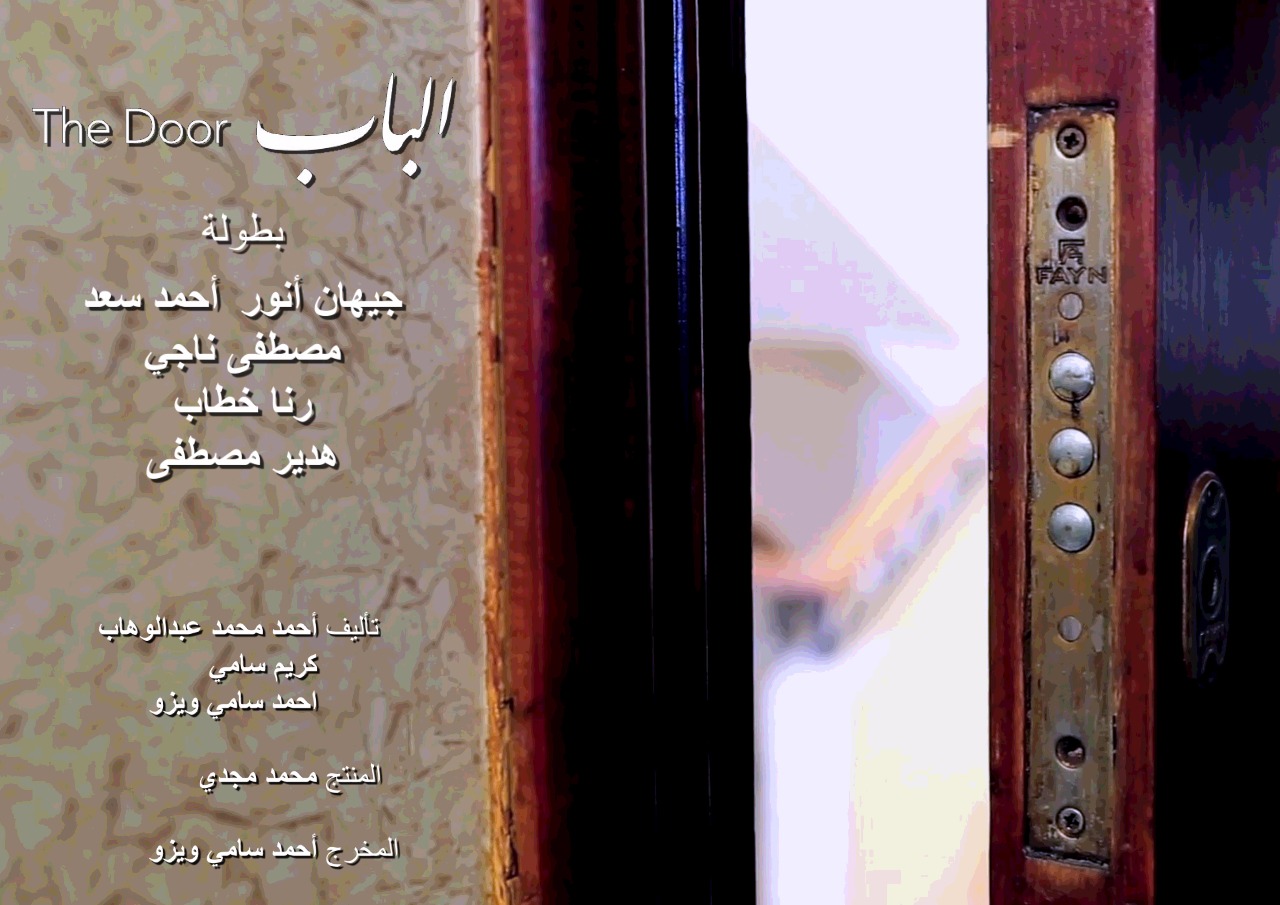 الباب The Door
بطولة
جيهان أنور أحمد سعد
مصطفى ناجي
رنا خطاب
هدير مصطفى
تأليف أحمد محمد عبدالوهاب
كريم سامي
احمد سامي ويزو
المنتج محمد مجدي
المخرج أحمد سامي ويزو
FAYN